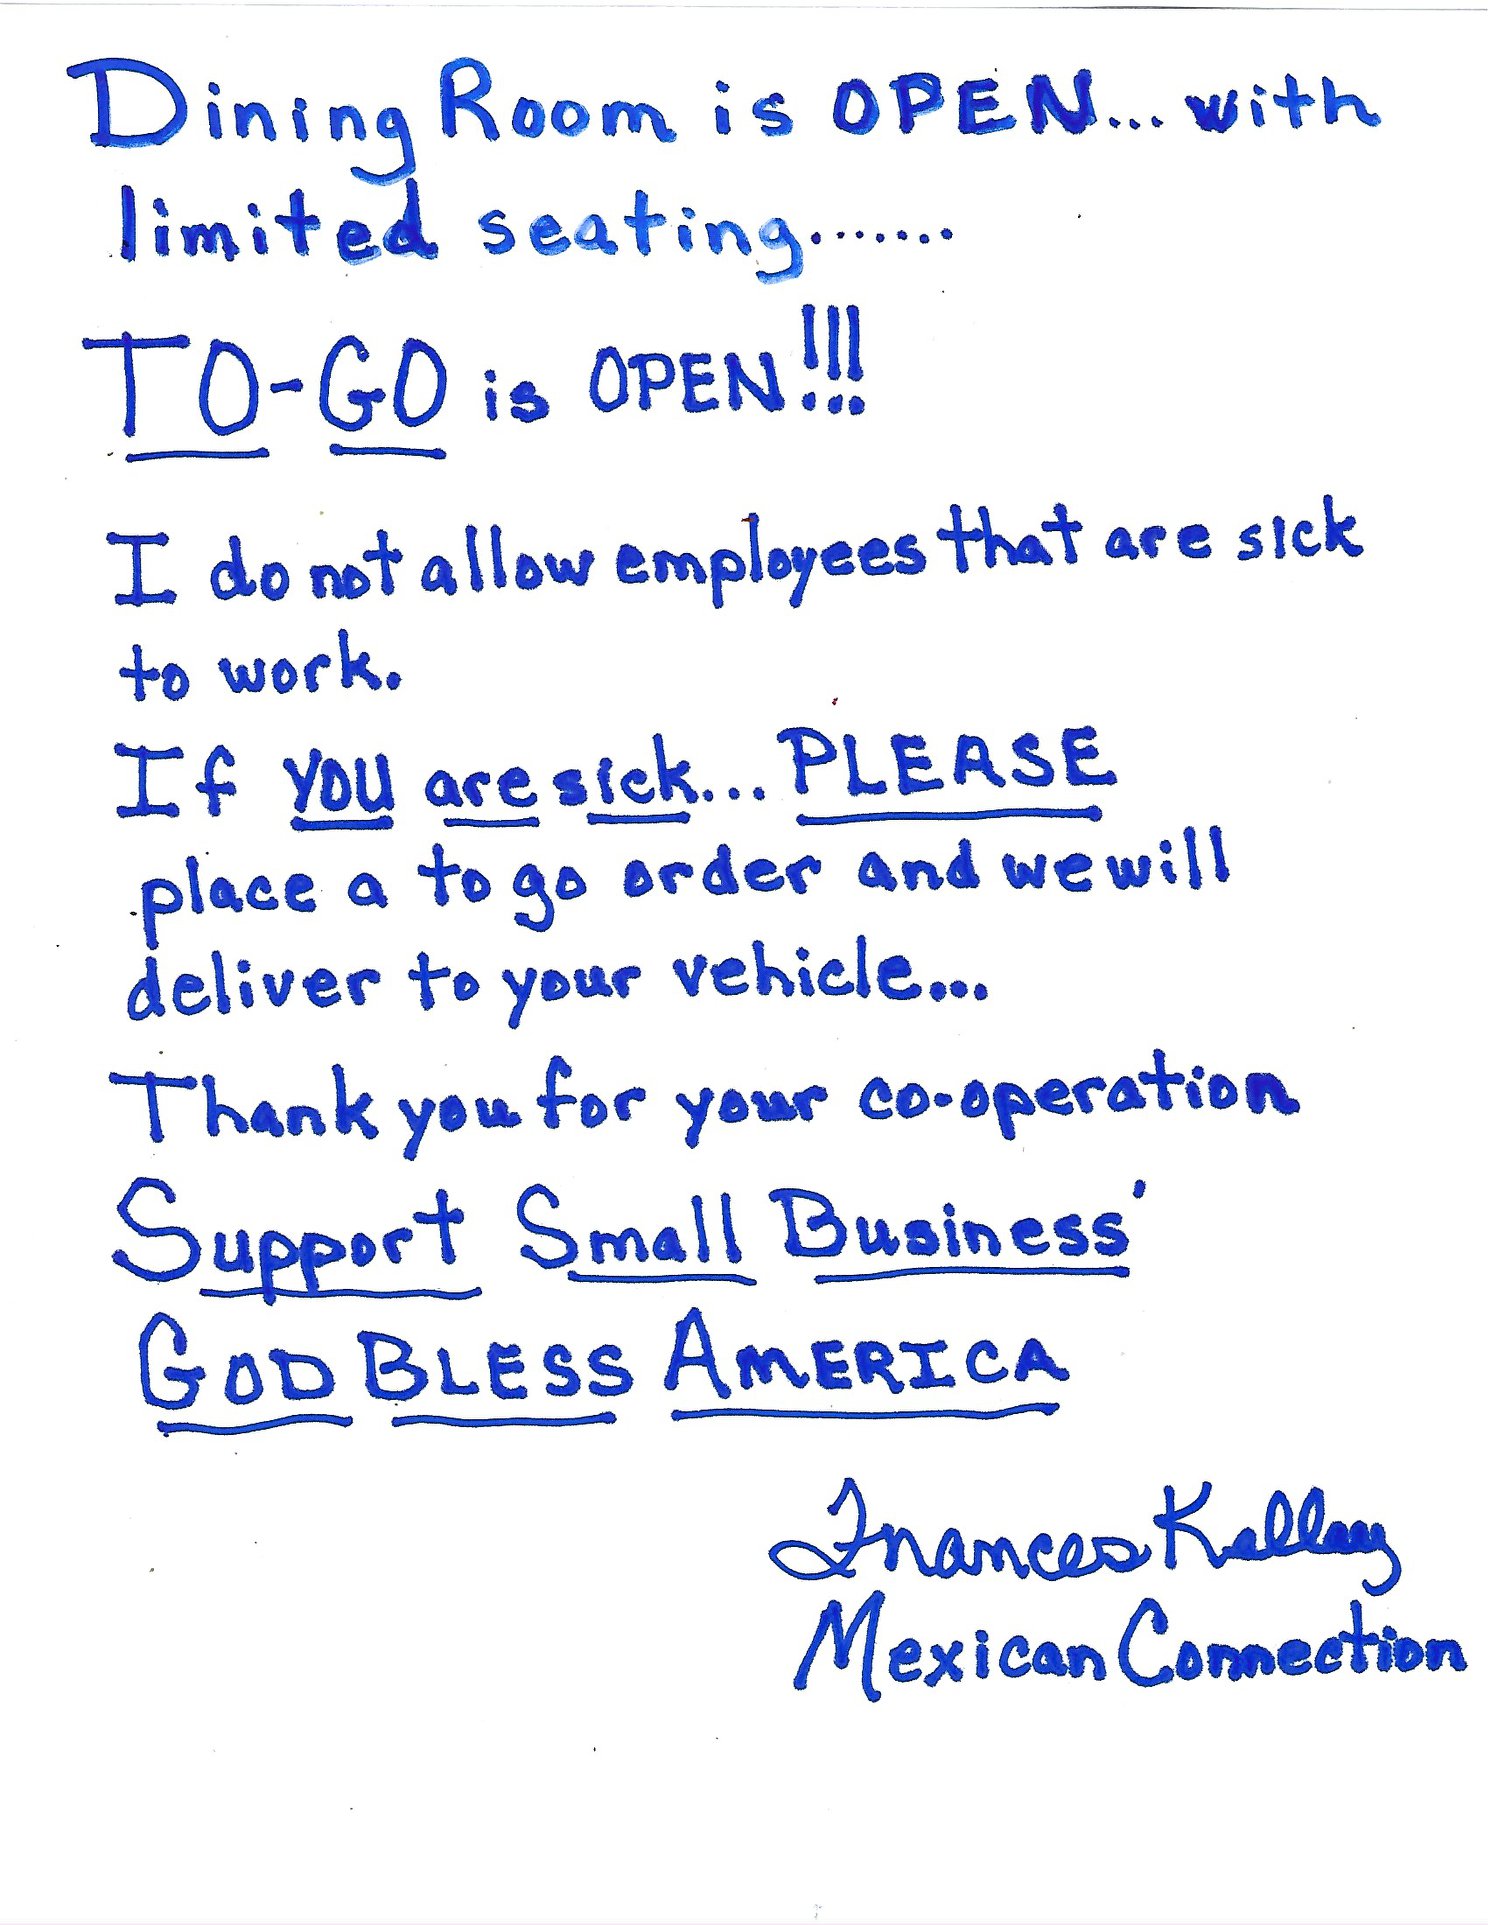 Dining Room is OPEN... with
limited seating.......
TO-GO is OPEN!!!
I do not allow employees that are sick
to work.
If you are sick... PLEASE
place a to go order and we will
deliver to your vehicle...
Thank you for your co-operation
Support Small Business'
GOD BLESS AMERICA
Frances Kelley
Mexican Connection